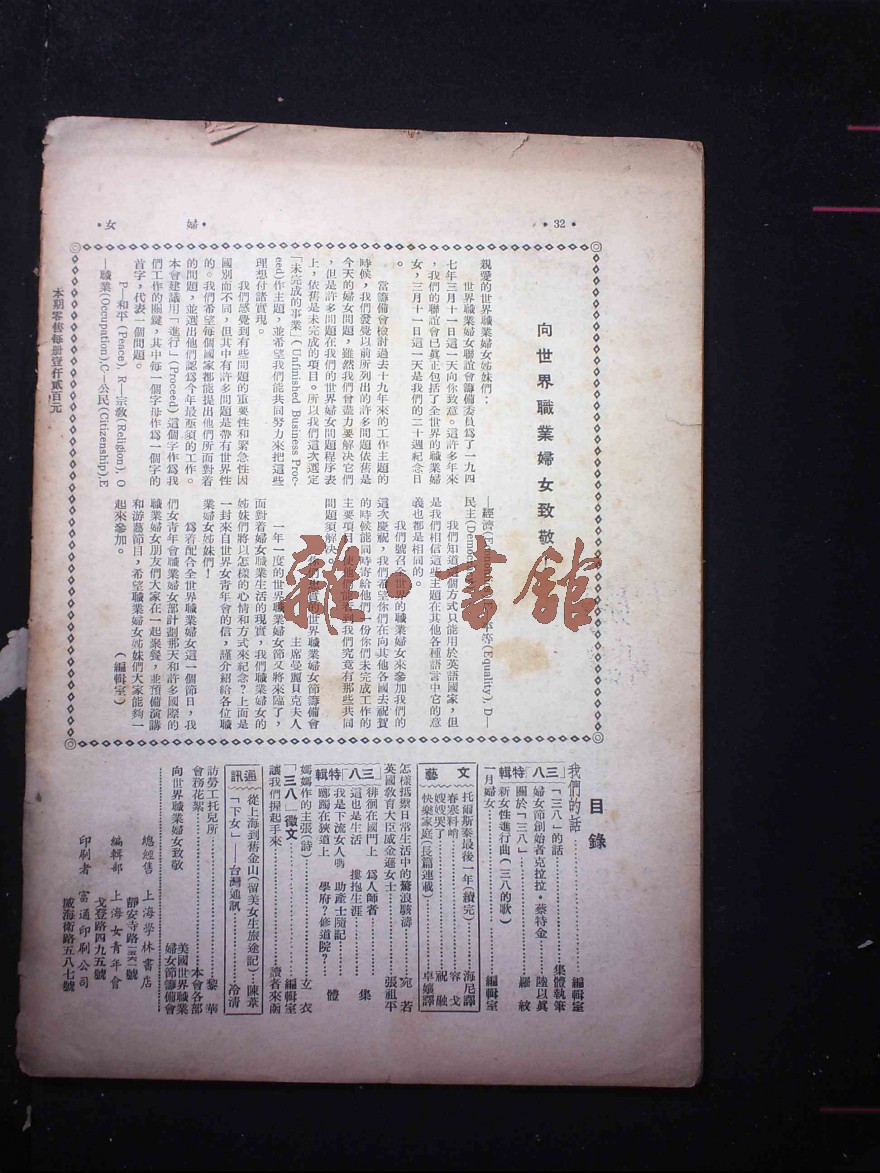 • 32 •
• 婦女 •
向世界職業婦女致敬
親愛的世界職業婦女姊妹們：
世界職業婦女聯誼會籌備委員爲了一九四
七年三月十一日這一天向你致意。這許多年來
，我們的聯誼會已眞正包括了全世界的職業婦
女，三月十一日這一天是我們的二十週紀念日
。
當籌備會檢討過去十九年來的工作主題的
時候，我們發覺以前所列出的許多問題依舊是
今天的婦女問題，雖然我們曾盡力要解决它們
，但是許多問題在我們的世界婦女問題程序表
上，依舊是未完成的項目。所以我們這次選定
「未完成的事業」(Unfinished Business Proc-
eed)作主題，並希望我們能共同努力來把這些
理想付諸實現。
我們感覺到有些問題的重要性和緊急性因
國別而不同，但其中有許多問題是帶有世界性
的。我們希望每個國家都能提出他們所面對着
的問題，並選出他們認爲今年最亟須的工作。
本會建議用「進行」(Proceed)這個字作爲我
們工作的關鍵，其中每一個字母作爲一個字的
首字，代表一個問題。
P—和平(Peace), R—宗敎(Religion), O
—職業(Occupation), C—公民(Citizenship), E
—經濟
等(Equality), D—
民主
我們知道這個方式只能用於英語國家，但
是我們相信這些主題在其他各種語言中它的意
義也都是相同的。
我們號召全世界的職業婦女來參加我們的
這次慶祝，我們希望你們在向其他各國去祝賀
的時候能同時寄給他們一份你們未完成工作的
主要項目，使他們能看到我們究竟有那些共同
問題須解决。
你們忠實的世界職業婦女節籌備會
主席曼麗貝克夫人
一年一度的世界職業婦女節又將來臨了，
面對着婦女職業生活的現實，我們職業婦女的
姊妹們將以怎樣的心情和方式來紀念？上面是
一封來自世界女青年會的信，謹介紹給各位職
業婦女姊妹們！
爲着配合全世界職業婦女這一個節日，我
們女青年會職業婦女部計劃那天和許多國際的
職業婦女朋友們大家在一起聚餐，並預備演講
和游藝節目，希望職業婦女姊妹們大家能夠一
起來參加。
（編輯室）
本期零售每册壹仟貳百元
目錄
我們的話……編輯室
「三八」特輯
「三八」的話……集體執筆
婦女節創始者克拉拉・蔡特金……陸以眞
關於「三八」……羅紋
新女性進行曲（三八的歌）
一月婦女……編輯室
文藝
托爾斯泰最後一年（續完）……海尼譯
春寒料峭……容戈
嫂嫂哭了……祝融
快樂家庭（長篇連載）……卓孃譯
怎樣抵禦日常生活中的驚浪駭濤……宛若
英國敎育大臣威金遜女士……張祖平
「三八」特輯
徘徊在國門上　爲人師者
這也是生活　摟抱生涯……集
我是下流女人嗎　助產士隨記
躑躅在狹道上　學府？修道院？……體
媽媽作的主張（詩）……立衣
「三八」徵文……編輯室
讓我們握起手來……讀者來函
通訊
從上海到舊金山（留美女生旅途記）…陳葦
「下女」——台灣通訊……冷清
訪勞工托兒所……黎華
會務花絮……本會各部
向世界職業婦女致敬……美國世界職業婦女節籌備會
總經售　上海學林書店
靜安寺路
編輯部　上海女青年會
戈登路四九五號
印刷者　富通印刷公司
威海衛路五八七號
雜・書館